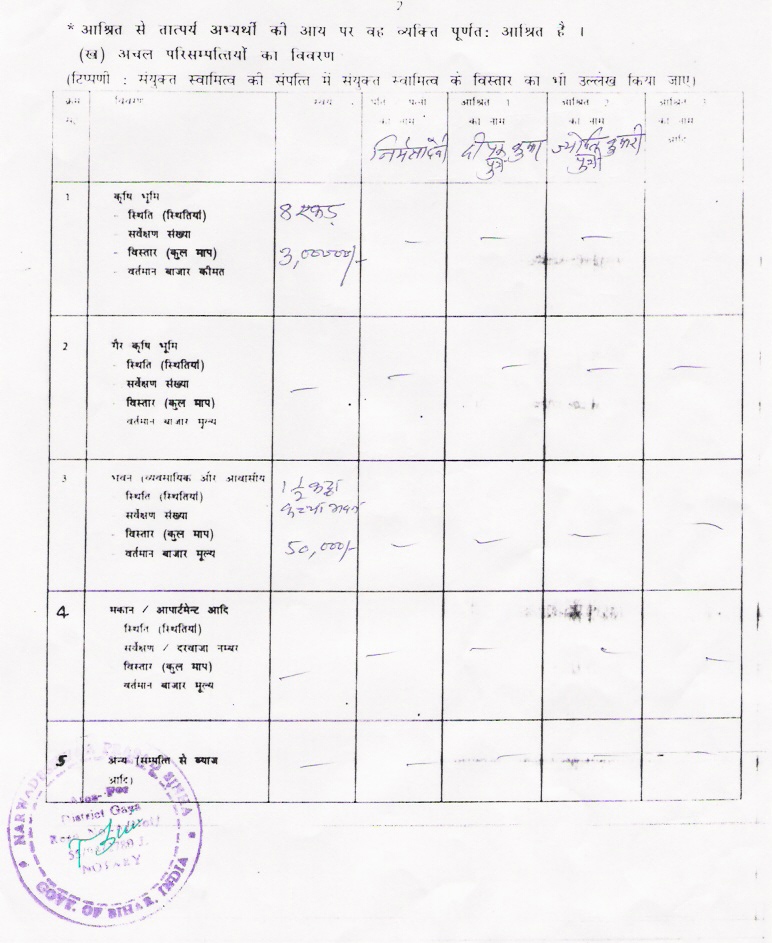 2
* आश्रित से तात्पर्य अभ्यर्थी की आय पर वह व्यक्ति पूर्णत: आश्रित है ।
(ख) अचल परिसम्पत्तियों का विवरण
(टिप्पणी : संयुक्त स्वामित्व की संपत्ति में संयुक्त स्वामित्व के विस्तार का भी उल्लेख किया जाए)
क्रम विवरण स्वयं पति पत्नी आश्रित 1 आश्रित 2 आश्रित 3
सं. का नाम का नाम का नाम का नाम
आदि
निर्मला देवी दीपक कुमार ज्योति कुमारी
पुत्र पुत्री
1 कृषि भूमि
- स्थिति (स्थितियां) 8 एकड़
- सर्वेक्षण संख्या — — —
- विस्तार (कुल माप) 3,00000/-
- वर्तमान बाजार कीमत
2 गैर कृषि भूमि
- स्थिति (स्थितियां) — — —
- सर्वेक्षण संख्या — —
- विस्तार (कुल माप)
वर्तमान बाजार मूल्य
3 भवन (व्यवसायिक और आवासीय 1 1/2 कट्ठा
स्थिति (स्थितियां)
सर्वेक्षण संख्या कच्चा मकान
- विस्तार (कुल माप) — —
- वर्तमान बाजार मूल्य 50,000/- — —
4 मकान / आपार्टमेन्ट आदि
स्थिति (स्थितियां)
सर्वेक्षण / दरवाजा नम्बर — — —
विस्तार (कुल माप) — —
वर्तमान बाजार मूल्य
5 अन्य (सम्पत्ति से ब्याज — — — — —
आदि)
SINHA
District Gaya
NOTARY
GOVT. OF BIHAR, INDIA